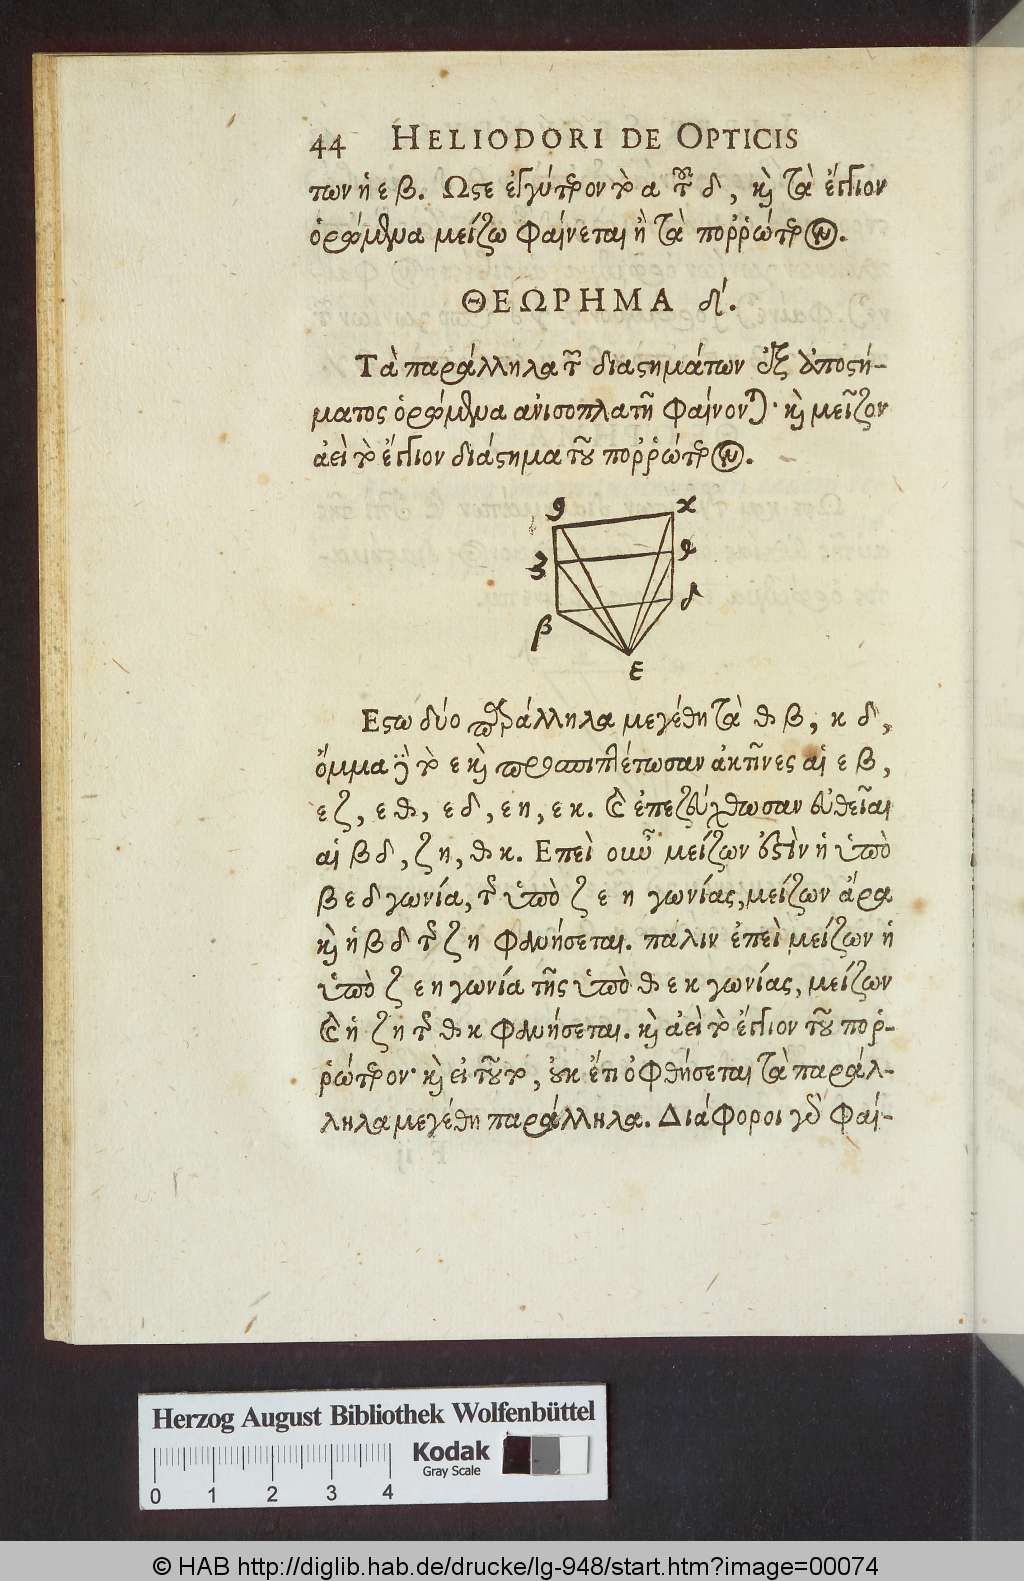 44 HELIODORI DE OPTICIS
των ἡ ε β. Ωστε ἐγγύτερον τὸ α τ͂ δ, καὶ τὰ ἔγγιον
ὁρώμενα μείζω φαίνεται ἢ τὰ πορρώτερον.
ΘΕΩΡΗΜΑ δ΄.
Τὰ παράλληλα τ͂ διαστημάτων ἐξ ἀποστή-
ματος ὁρώμενα ἀνισοπλατῆ φαίνονται· καὶ μεῖζον
ἀεὶ τὸ ἔγγιον διάστημα τοῦ πορρώτερον.
θ κ
ζ η
β δ
ε
Εστω δύο παράλληλα μεγέθη τὰ θ β, κ δ,
ὄμμα δὲ τὸ ε καὶ προσπιπτέτωσαν ἀκτῖνες αἱ ε β,
ε ζ, ε θ, ε δ, ε η, ε κ. καὶ ἐπεζεύχθωσαν εὐθεῖαι
αἱ β δ, ζ η, θ κ. Επεὶ οὖν μείζων ἐστὶν ἡ ὑπὸ
β ε δ γωνία, τ͂ ὑπὸ ζ ε η γωνίας, μείζων ἄρα
καὶ ἡ β δ τ͂ ζ η φανήσεται. πάλιν ἐπεὶ μείζων ἡ
ὑπὸ ζ ε η γωνία τῆς ὑπὸ θ ε κ γωνίας, μείζων
καὶ ἡ ζ η τ͂ θ κ φανήσεται. καὶ ἀεὶ τὸ ἔγγιον τοῦ πορ-
ρώτερον· καὶ εἰ τοῦτο, οὐκ ἔτι ὀφθήσεται τὰ παράλ-
ληλα μεγέθη παράλληλα. Διάφοροι γδ φαί-
Herzog August Bibliothek Wolfenbüttel
Kodak
Gray Scale
0 1 2 3 4
© HAB http://diglib.hab.de/drucke/lg-948/start.htm?image=00074